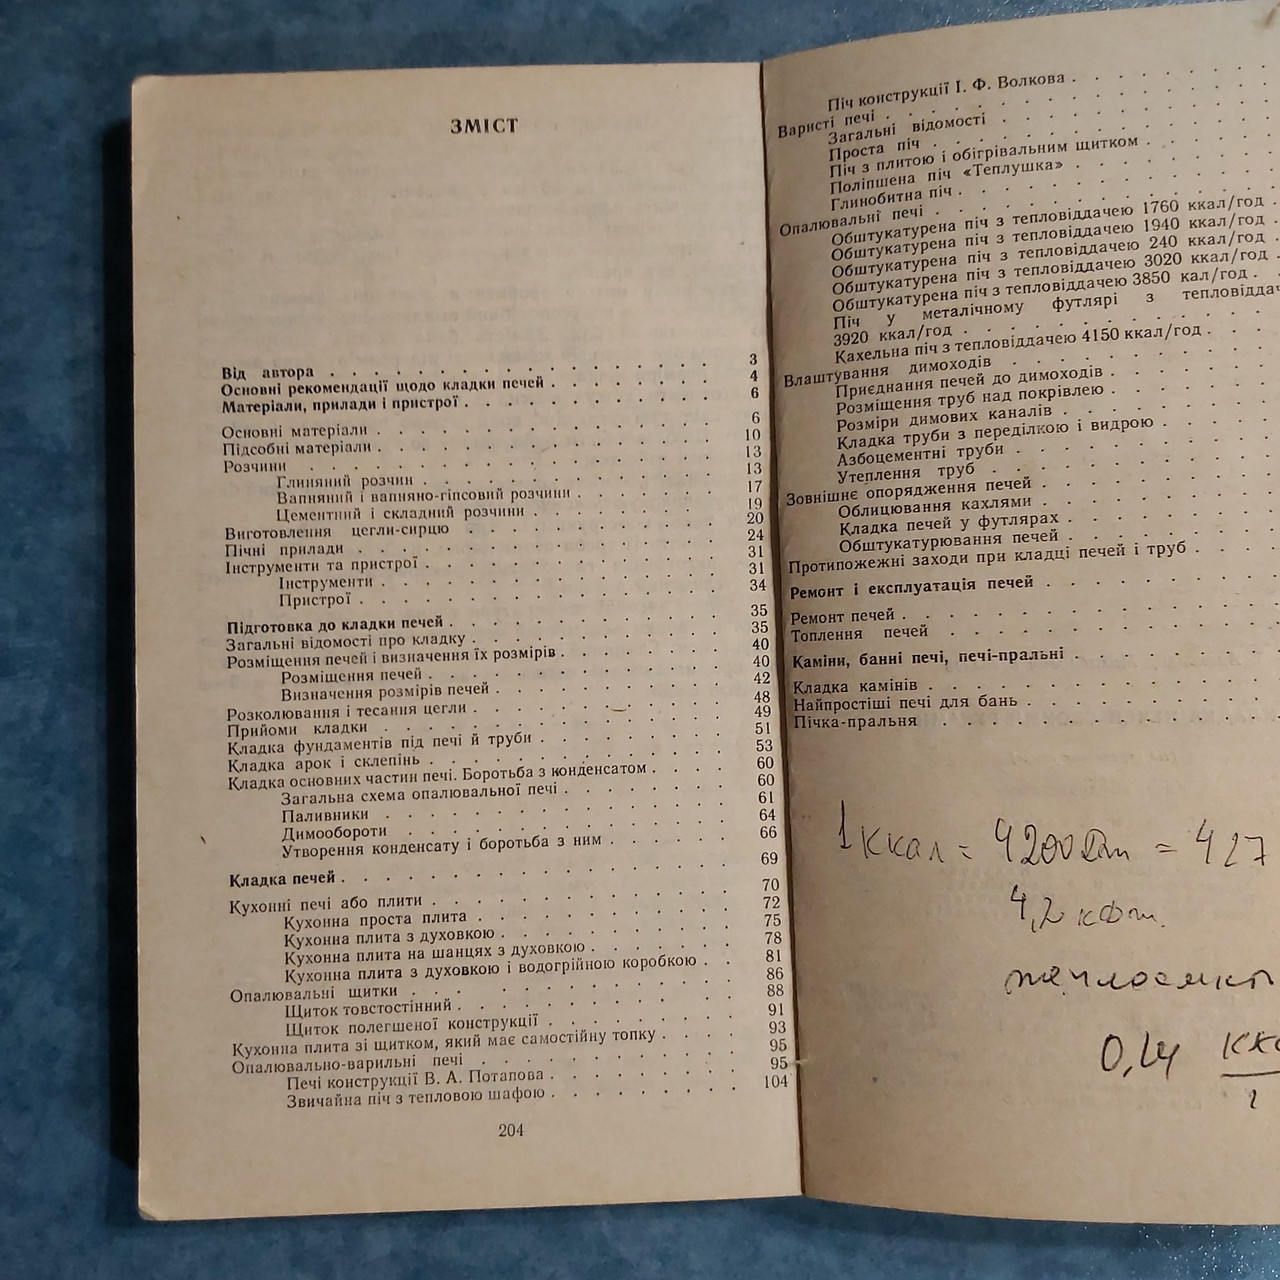 ЗМІСТ
Від автора . . . . . . . . . . . . . . . . . 3
Основні рекомендації щодо кладки печей . . . . . . . 4
Матеріали, прилади і пристрої . . . . . . . . . . . 6
Основні матеріали . . . . . . . . . . . . . . . 6
Підсобні матеріали . . . . . . . . . . . . . . . 10
Розчини . . . . . . . . . . . . . . . . . . 13
Глиняний розчин . . . . . . . . . . . . . . 13
Вапняний і вапняно-гіпсовий розчини . . . . . . . 17
Цементний і складний розчини . . . . . . . . . 19
Виготовлення цегли-сирцю . . . . . . . . . . . . 20
Пічні прилади . . . . . . . . . . . . . . . . 24
Інструменти та пристрої . . . . . . . . . . . . . 31
Інструменти . . . . . . . . . . . . . . . 31
Пристрої . . . . . . . . . . . . . . . . 34
Підготовка до кладки печей . . . . . . . . . . . . 35
Загальні відомості про кладку . . . . . . . . . . . 35
Розміщення печей і визначення їх розмірів . . . . . . . 40
Розміщення печей . . . . . . . . . . . . . 40
Визначення розмірів печей . . . . . . . . . . 42
Розколювання і тесання цегли . . . . . . . . . . . 48
Прийоми кладки . . . . . . . . . . . . . . . 49
Кладка фундаментів під печі й труби . . . . . . . . 51
Кладка арок і склепінь . . . . . . . . . . . . . 53
Кладка основних частин печі. Боротьба з конденсатом . . . . 60
Загальна схема опалювальної печі . . . . . . . . 60
Паливники . . . . . . . . . . . . . . . 61
Димообороти . . . . . . . . . . . . . . 64
Утворення конденсату і боротьба з ним . . . . . . 66
Кладка печей . . . . . . . . . . . . . . . . 69
Кухонні печі або плити . . . . . . . . . . . . . 70
Кухонна проста плита . . . . . . . . . . . . 72
Кухонна плита з духовкою . . . . . . . . . . 75
Кухонна плита на шанцях з духовкою . . . . . . . 78
Кухонна плита з духовкою і водогрійною коробкою . . 81
Опалювальні щитки . . . . . . . . . . . . . . 86
Щиток товстостінний . . . . . . . . . . . . 88
Щиток полегшеної конструкції . . . . . . . . . 91
Кухонна плита зі щитком, який має самостійну топку . . . . 93
Опалювально-варильні печі . . . . . . . . . . . . 95
Печі конструкції В. А. Потапова . . . . . . . . 95
Звичайна піч з тепловою шафою . . . . . . . . 104
204
Піч конструкції І. Ф. Волкова . . . . . . . .
Варисті печі . . . . . . . . . . . . . .
Загальні відомості . . . . . . . . . . .
Проста піч . . . . . . . . . . . . .
Піч з плитою і обігрівальним щитком . . . . .
Поліпшена піч «Теплушка» . . . . . . . .
Глинобитна піч . . . . . . . . . . . .
Опалювальні печі . . . . . . . . . . . .
Обштукатурена піч з тепловіддачею 1760 ккал/год .
Обштукатурена піч з тепловіддачею 1940 ккал/год .
Обштукатурена піч з тепловіддачею 240 ккал/год .
Обштукатурена піч з тепловіддачею 3020 ккал/год .
Обштукатурена піч з тепловіддачею 3850 кал/год . .
Піч у металічному футлярі з тепловіддач
3920 ккал/год . . . . . . . . . . . .
Кахельна піч з тепловіддачею 4150 ккал/год . . . .
Влаштування димоходів . . . . . . . . . .
Приєднання печей до димоходів . . . . . . .
Розміщення труб над покрівлею . . . . . . .
Розміри димових каналів . . . . . . . . .
Кладка труби з переділкою і видрою . . . . .
Азбоцементні труби . . . . . . . . . . .
Утеплення труб . . . . . . . . . . . .
Зовнішнє опорядження печей . . . . . . . . .
Облицювання кахлями . . . . . . . . . .
Кладка печей у футлярах . . . . . . . . .
Обштукатурювання печей . . . . . . . . .
Протипожежні заходи при кладці печей і труб . . . .
Ремонт і експлуатація печей . . . . . . . . .
Ремонт печей . . . . . . . . . . . . . .
Топлення печей . . . . . . . . . . . . .
Каміни, банні печі, печі-пральні . . . . . . . .
Кладка камінів . . . . . . . . . . . . .
Найпростіші печі для бань . . . . . . . . . .
Пічка-пральня . . . . . . . . . . . . .
1 ккал = 4200 Дж = 427
4,2 кДж
теплоемк
0,24 кка